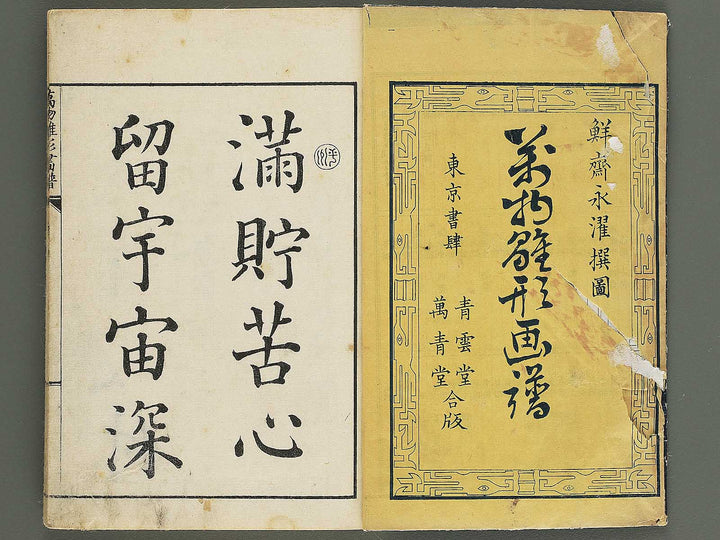 鮮齋永濯撰圖
萬物雛形画譜
東京書肆
青雲堂
萬青堂
合版
滿貯苦心
留宇宙深
萬物雛形畫譜